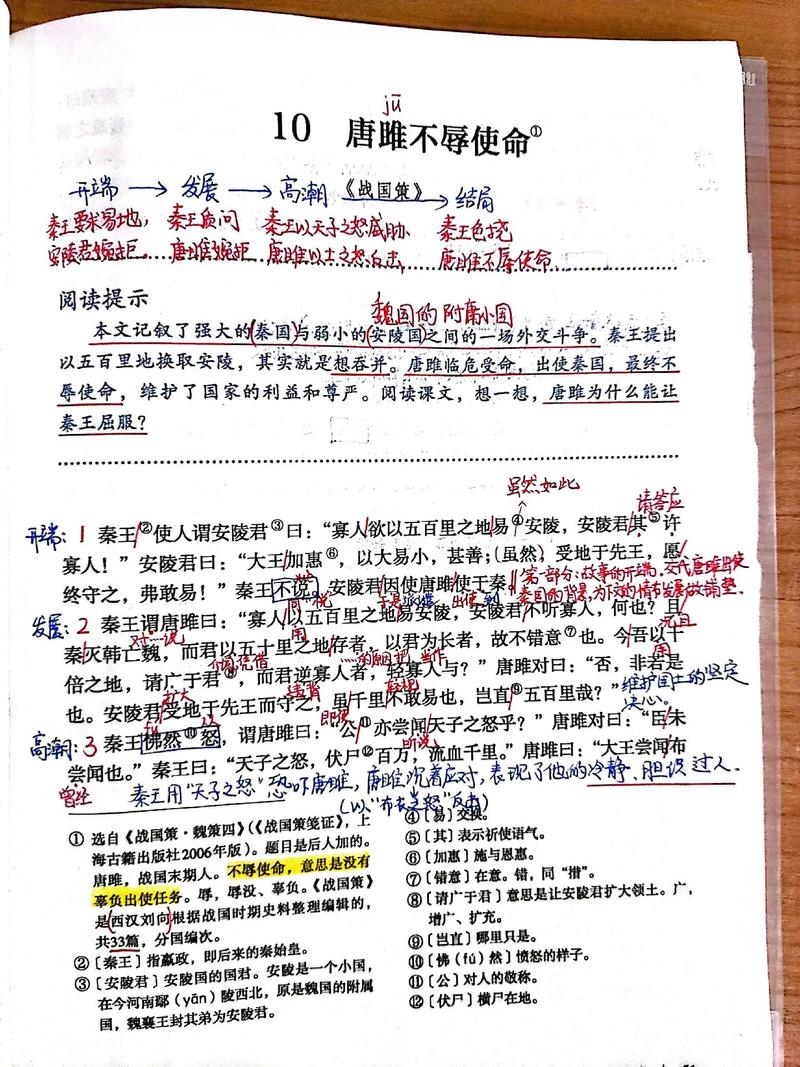 jū
10 唐雎不辱使命①
开端 → 发展 → 高潮 《战国策》 结局
秦王要求易地, 秦王质问 秦王以天子之怒威胁 秦王色挠
安陵君婉拒 唐雎婉拒 唐雎以士之怒 唐雎不辱使命
阅读提示
魏国的附庸小国
本文记叙了强大的(秦国)与弱小的(安陵国)之间的一场外交斗争。秦王提出
以五百里地换取安陵,其实就是想吞并。唐雎临危受命,出使秦国,最终不
辱使命,维护了国家的利益和尊严。阅读课文,想一想,唐雎为什么能让
秦王屈服?
虽然如此
请答应
开端: 1 秦王②使人谓安陵君③曰:“寡人欲以五百里之地易④安陵,安陵君其⑤许
寡人!”安陵君曰:“大王加惠⑥,以大易小,甚善;(虽然)受地于先王,愿
终守之,弗敢易!”秦王不说。安陵君因使唐雎使于秦。
第一部分:故事的开端,交代唐雎出使
秦国的背景,为下文的情节发展做铺垫.
同“悦” 于是 派遣 出使 到
发展: 2 秦王谓唐雎曰:“寡人以五百里之地易安陵,安陵君不听寡人,何也?且
对……说 用 况且
秦灭韩亡魏,而君以五十里之地存者,以君为长者,故不错意⑦也。今吾以十
凭借 把 当作 用
倍之地,请广于君⑧,而君逆寡人者,轻寡人与?”唐雎对曰:“否,非若是
扩大 违背 轻视
也。安陵君受地于先王而守之,虽千里不敢易也,岂直⑨五百里哉?”
维护国土的坚定
决心。
fú 即使
高潮: 3 秦王怫然⑩怒,谓唐雎曰:“公⑪亦尝闻天子之怒乎?”唐雎对曰:“臣未
听说
尝闻也。”秦王曰:“天子之怒,伏尸⑫百万,流血千里。”唐雎曰:“大王尝闻布
曾经 秦王用“天子之怒”恐吓唐雎,唐雎沉着应对,表现了他的冷静、胆识过人.
(以“布衣之怒”反击)
① 选自《战国策·魏策四》(《战国策笺证》,上
海古籍出版社2006年版)。题目是后人加的。
唐雎,战国末期人。不辱使命,意思是没有
辜负出使任务。辱,辱没、辜负。《战国策》
是(西汉刘向)根据战国时期史料整理编辑的,
共33篇,分国编次。
②〔秦王〕指嬴政,即后来的秦始皇。
③〔安陵君〕安陵国的国君。安陵是一个小国,
在今河南鄢(yān)陵西北,原是魏国的附属
国,魏襄王封其弟为安陵君。
④〔易〕交换。
⑤〔其〕表示祈使语气。
⑥〔加惠〕施与恩惠。
⑦〔错意〕在意。错,同“措”。
⑧〔请广于君〕意思是让安陵君扩大领土。广,
增广、扩充。
⑨〔岂直〕哪里只是。
⑩〔怫(fú)然〕愤怒的样子。
⑪〔公〕对人的敬称。
⑫〔伏尸〕横尸在地。